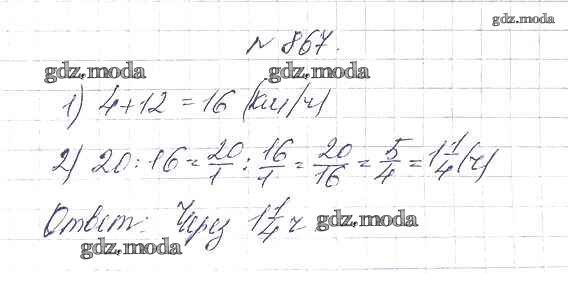 gdz.moda
№ 867.
gdz.moda gdz.moda
1) 4+12 = 16 (км/ч)
2) 20 : 16 = 20/1 : 16/1 = 20/16 = 5/4 = 1 1/4 (ч)
Ответ: Через 1 1/4 ч gdz.moda
gdz.moda